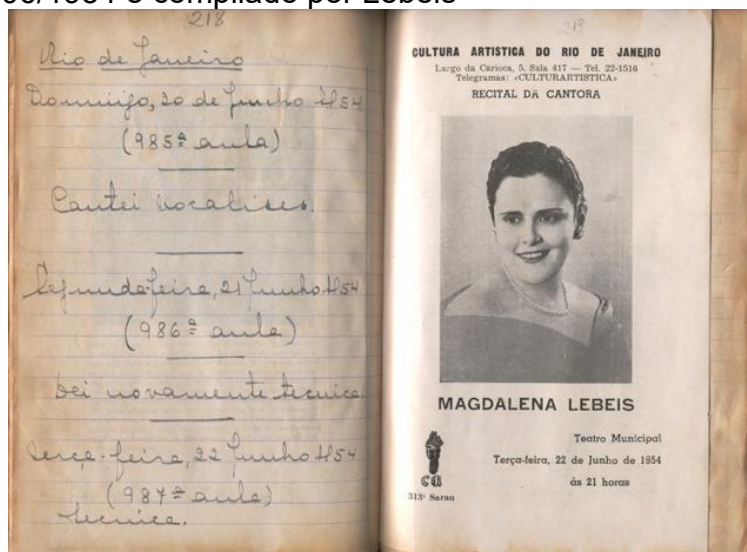 06/1954 e compilado por Lebeis
218
Rio de Janeiro
Domingo, 20 de Junho 1954
(985ª aula)
Cantei vocalises.
Segunda-feira, 21 Junho 1954
(986ª aula)
Dei novamente tecnica.
Terça-feira, 22 Junho 1954
(987ª aula)
Tecnica.
219
CULTURA ARTISTICA DO RIO DE JANEIRO
Largo da Carioca, 5, Sala 417 — Tel. 22-1516
Telegramas: «CULTURARTISTICA»
RECITAL DA CANTORA
MAGDALENA LEBEIS
Teatro Municipal
Terça-feira, 22 de Junho de 1954
ás 21 horas
CA
313º Sarau